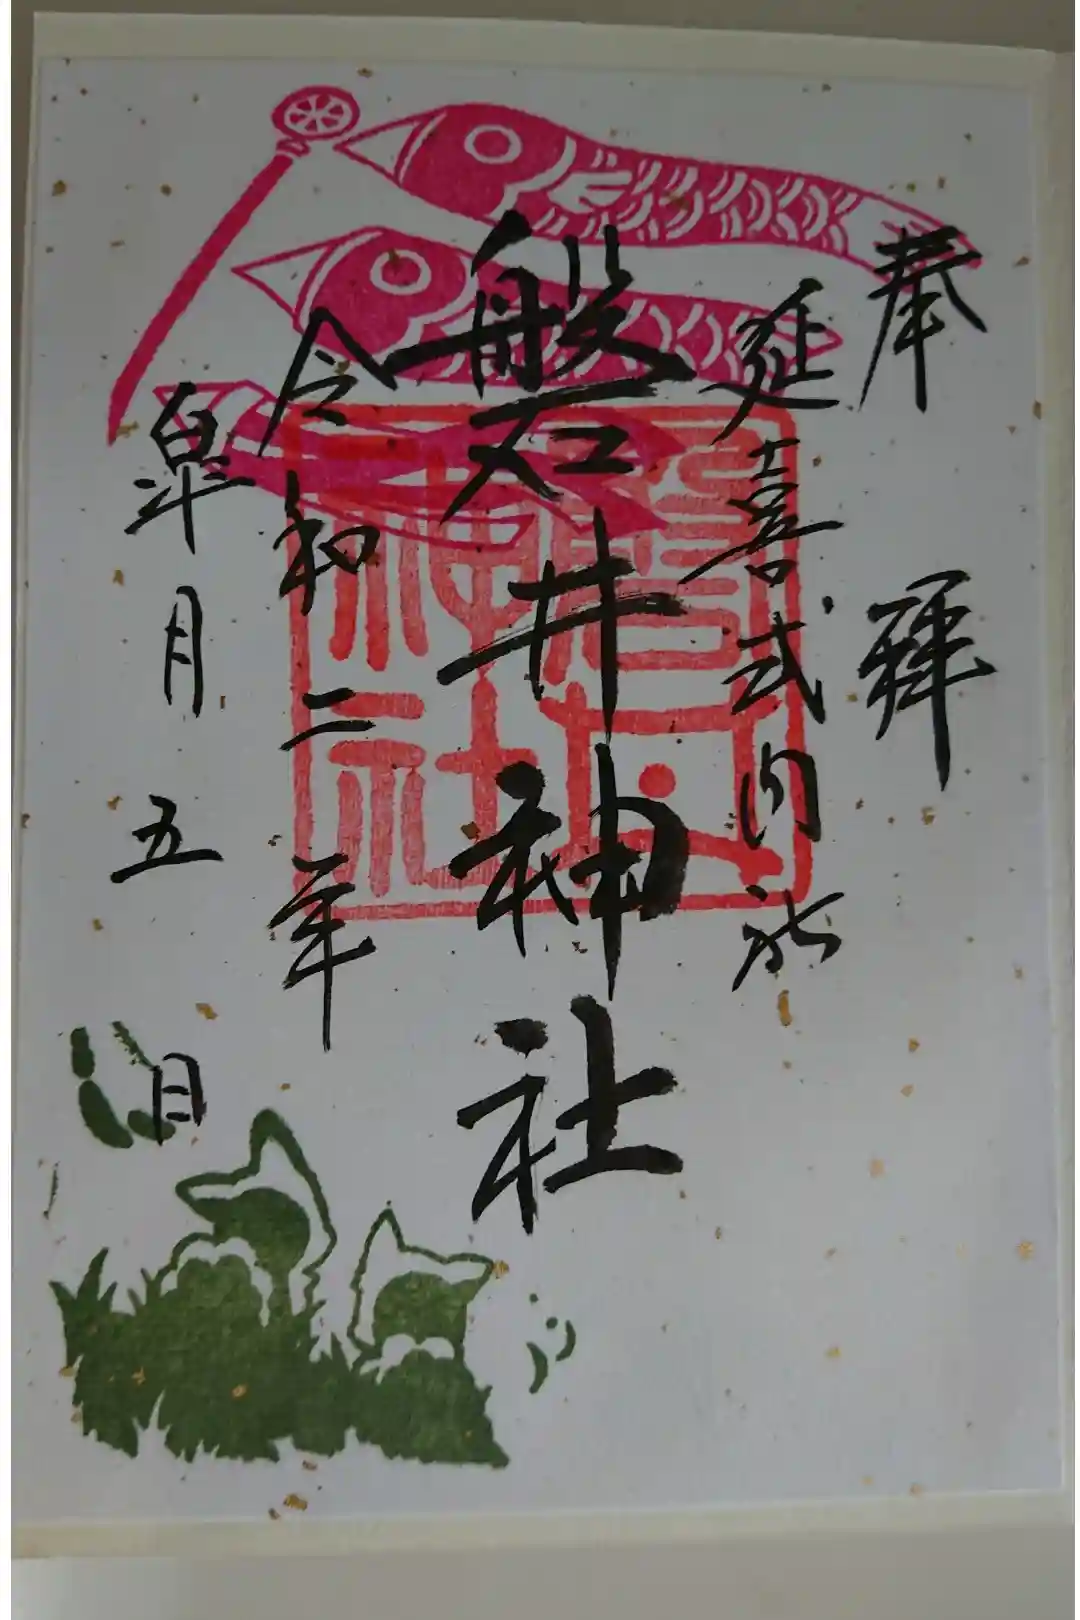 奉拝
延喜式内社
磐井神社
令和二年
皐月五日
磐井神社